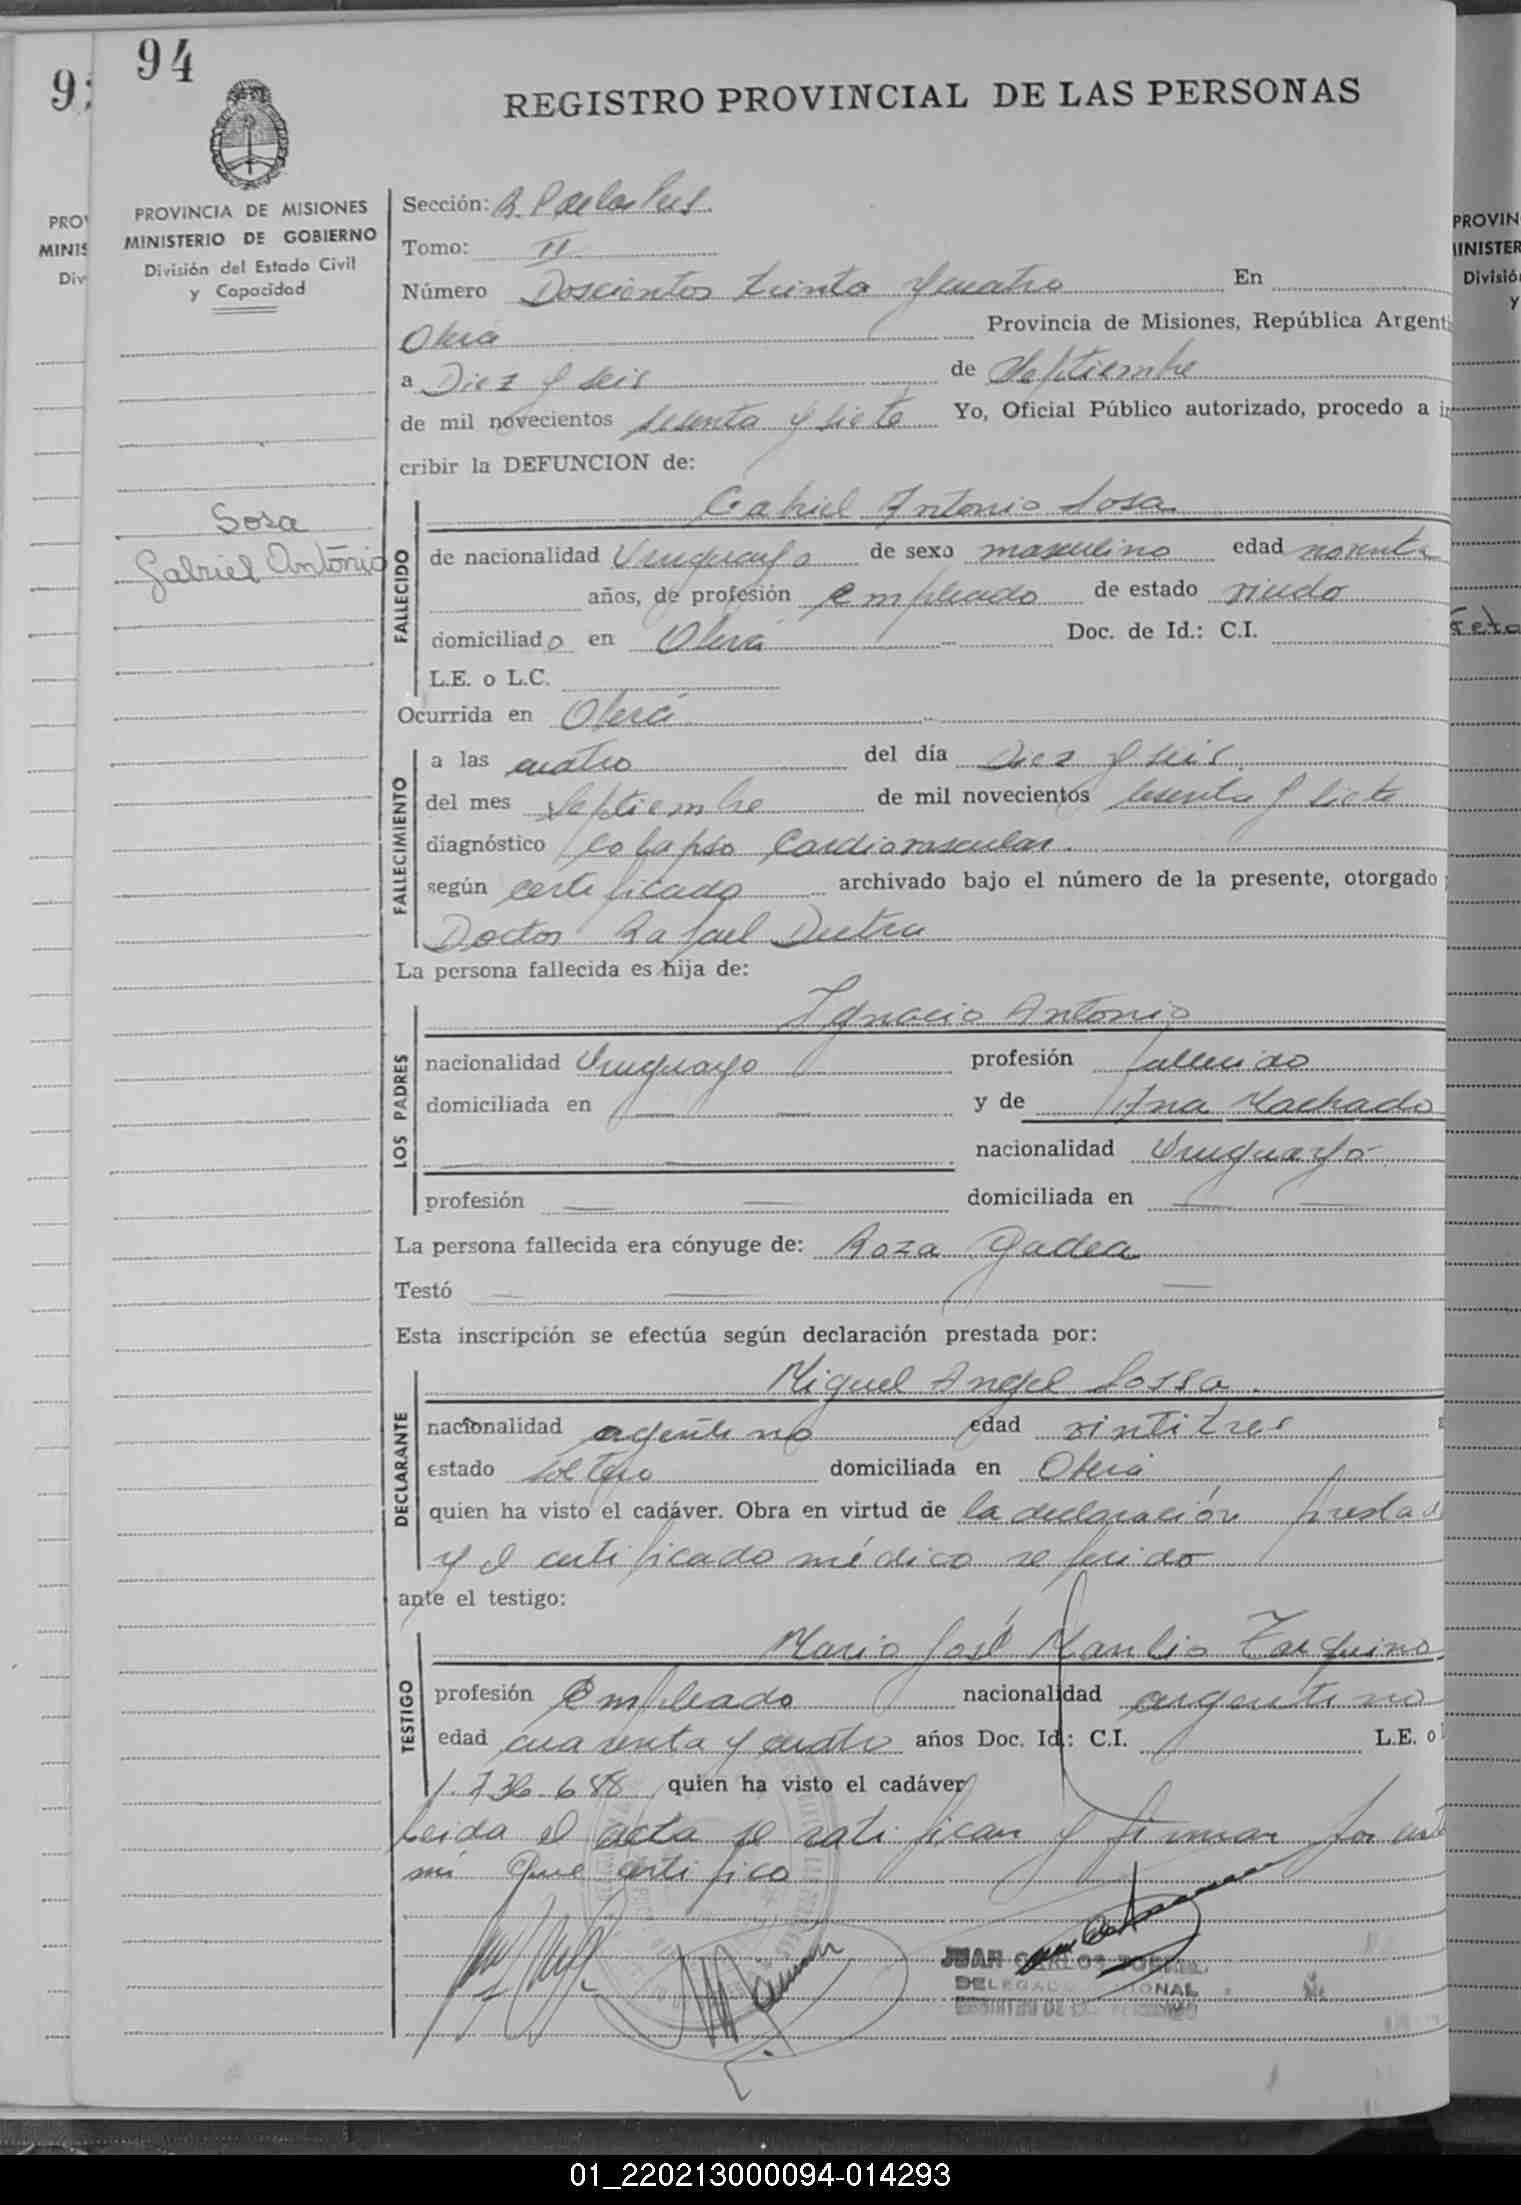 94
REGISTRO PROVINCIAL DE LAS PERSONAS
PROVINCIA DE MISIONES
MINISTERIO DE GOBIERNO
División del Estado Civil
y Capacidad
Sosa
Gabriel Antonio
Sección: R. P de las Pers.
Tomo: II
Número Doscientos treinta y cuatro En
Oberá Provincia de Misiones, República Argenti
a Diez y seis de Septiembre
de mil novecientos sesenta y siete Yo, Oficial Público autorizado, procedo a in
cribir la DEFUNCION de:
FALLECIDO
Gabriel Antonio Sosa
de nacionalidad Uruguayo de sexo masculino edad noventa
años, de profesión empleado de estado viudo
domiciliado en Oberá Doc. de Id.: C.I.
L.E. o L.C.
Ocurrida en Oberá
FALLECIMIENTO
a las cuatro del día Diez y seis
del mes Septiembre de mil novecientos sesenta y siete
diagnóstico Colapso Cardiovascular.
según certificado archivado bajo el número de la presente, otorgado
Doctor Rafael Dutra
La persona fallecida es hija de:
LOS PADRES
Ignacio Antonio
nacionalidad Uruguayo profesión fallecido
domiciliada en — — y de Ana Machado
— — nacionalidad Uruguayo
profesión — — domiciliada en — —
La persona fallecida era cónyuge de: Roza Gadea
Testó — — —
Esta inscripción se efectúa según declaración prestada por:
DECLARANTE
Miguel Angel Sossa.
nacionalidad argentino edad vintitres
estado soltero domiciliada en Oberá
quien ha visto el cadáver. Obra en virtud de la declaración prestad
y el certificado médico referido
ante el testigo:
TESTIGO
Mario José Manlio Tarquino
profesión Empleado nacionalidad argentino
edad cuarenta y cuatro años Doc. Id.: C.I. L.E. o
1.736.688 quien ha visto el cadáver
Leida el acta se ratifican y firman por ante
mi que certifico
JUAN CARLOS
DELEGADO
01_220213000094-014293